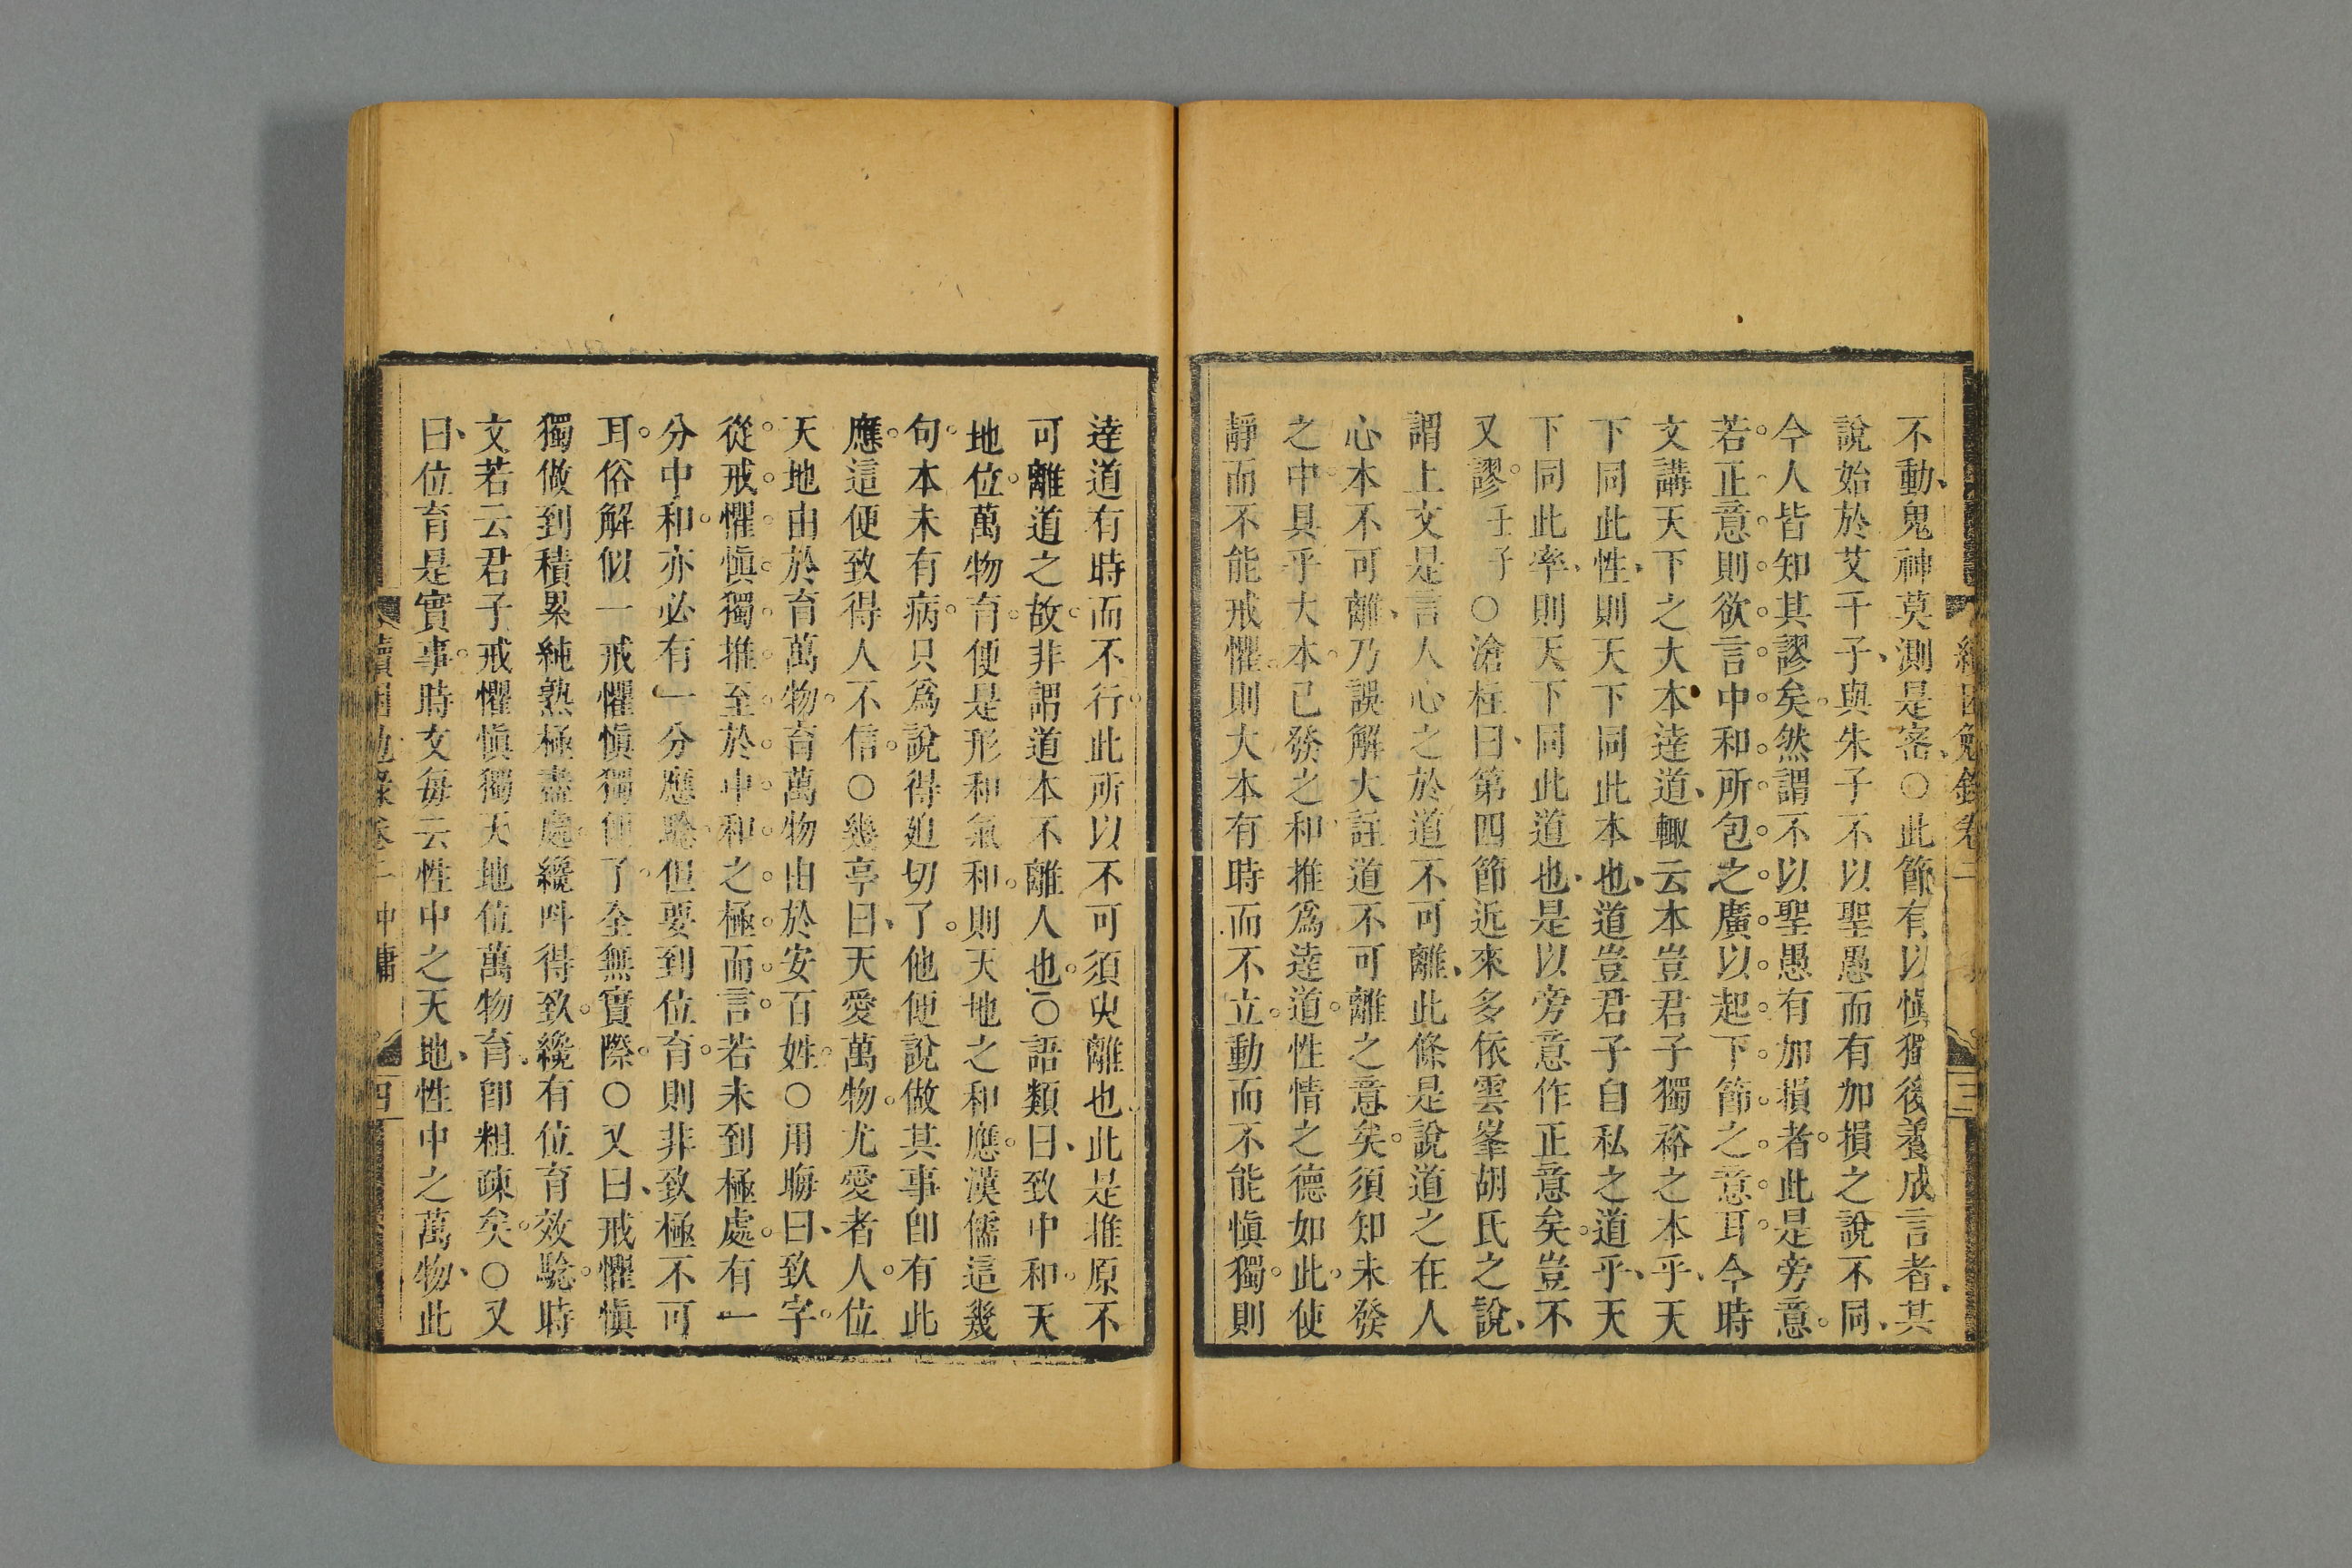 不動鬼神莫測是密○此節有以慎獨後養成言者其
說始於艾千子與朱子不以聖愚而有加損之說不同
今人皆知其謬矣然謂不以聖愚有加損者此是旁意
若正意則欲言中和所包之廣以起下節之意耳今時
文講天下之大本達道輙云本豈君子獨裕之本乎天
下同此性則天下同此本也道豈君子自私之道乎天
下同此率則天下同此道也是以旁意作正意矣豈不
又謬壬子○滄柱曰第四節近來多依雲峯胡氏之說
謂上文是言人心之於道不可離此條是說道之在人
心本不可離乃誤解大註道不可離之意矣須知未發
之中具乎大本已發之和推為達道性情之德如此使
靜而不能戒懼則大本有時而不立動而不能慎獨則
達道有時而不行此所以不可須臾離也此是推原不
可離道之故非謂道本不離人也○語類曰致中和天
地位萬物育便是形和氣和則天地之和應漢儒這幾
句本未有病只為說得廹切了他便說做其事卽有此
應這便致得人不信○幾亭曰天愛萬物尤愛者人位
天地由於育萬物育萬物由於安百姓○用晦曰致字
從戒懼慎獨推至於中和之極而言若未到極處有一
分中和亦必有一分應騐但要到位育則非致極不可
耳俗解似一戒懼慎獨便了全無實際○又曰戒懼慎
獨做到積累純熟極盡處纔呌得致纔有位育效騐時
文若云君子戒懼慎獨天地位萬物育卽粗疎矣○又
曰位育是實事時文每云性中之天地性中之萬物此
續困勉錄卷二 中庸 四